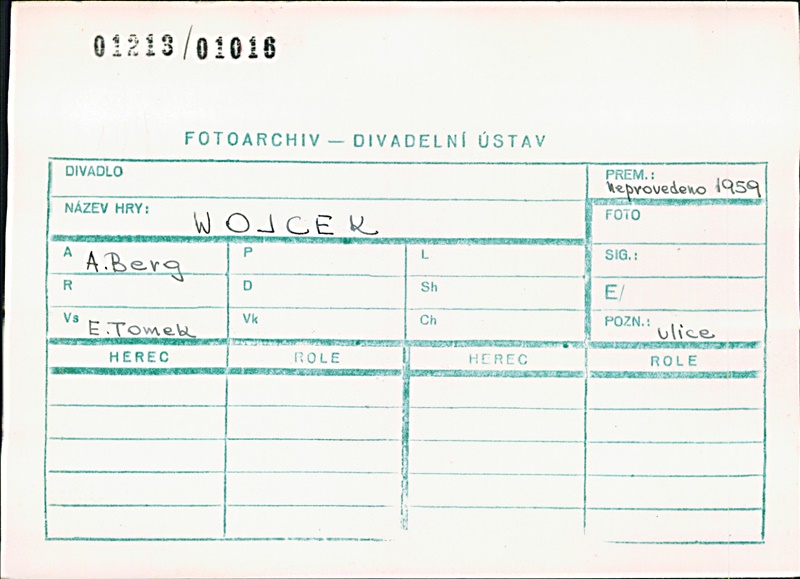 01213/01016
FOTOARCHIV — DIVADELNÍ ÚSTAV
DIVADLO
PREM.: neprovedeno 1959
NÁZEV HRY: WOJCEK
FOTO
A A.Berg P L SIG.:
R D Sh E/
Vs E.Tomek Vk Ch POZN.: ulice
HEREC ROLE HEREC ROLE